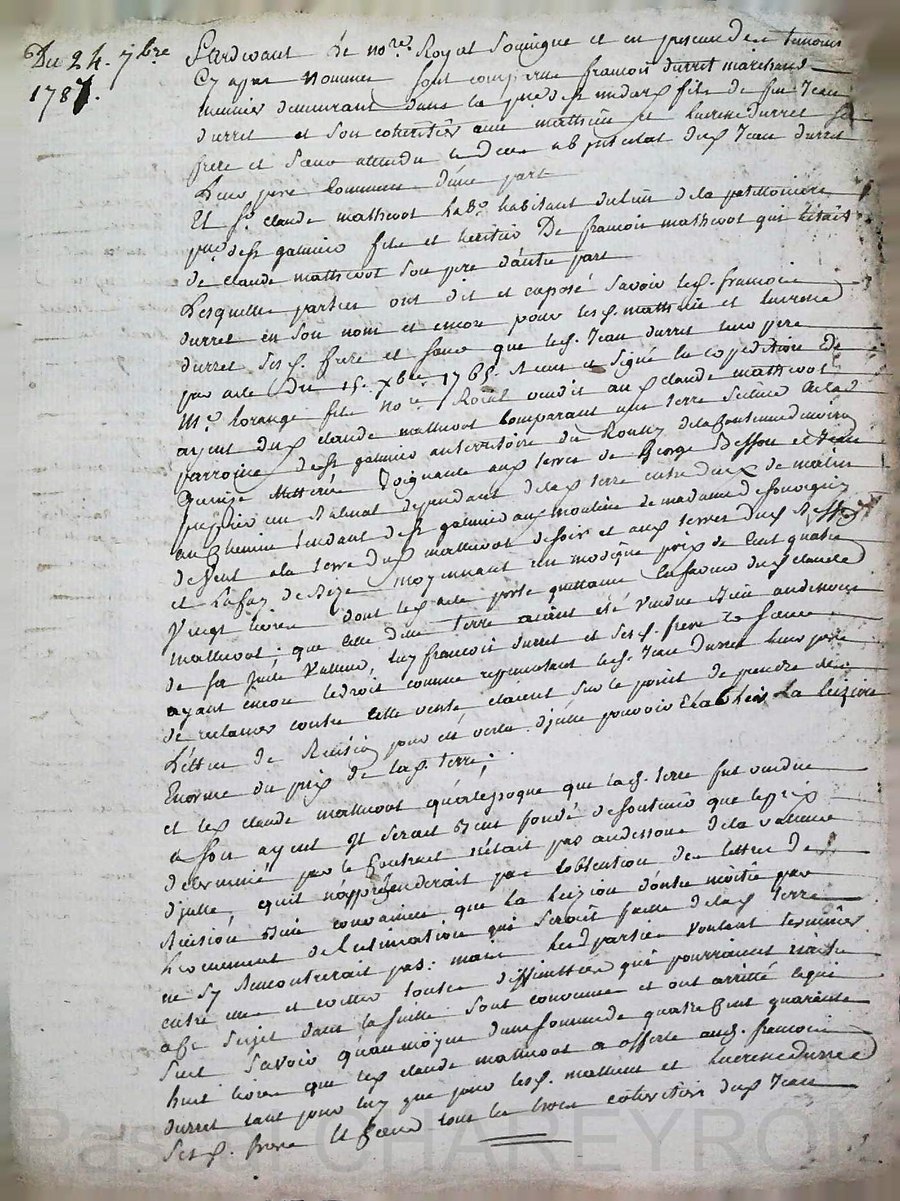 Du 24. 7bre
1787.
Pardevant Le nore Royal Soussigné et en presence des temoins
Cy apres Nommés sont comparus francois durret marchand
meunier demeurant dans la psse de St medard fils de feu Jean
durret et Son coheritier avec mathieu et lucrece durret Ses
frere et Soeur attendu le deces ab intestat dud. Jean durret
Leur pere Commun d'une part
Et Sr. claude mathevot labr. habitant du lieu de la petitoniere
psse de St galmier fils et heritier De francois mathevot qui l'etait
de claude mathevot Son pere d'autre part
Lesquelles parties ont dit et exposé Savoir led. francois
durret en Son nom et encore pour lesd. mathieu et lucrece
durret Sesd. frere et Soeur que led. Jean durret leur pere
par acte du 15. xbre 1765. Recu et Signé la expedition De
Me. lorange fils nore Roial vendit aud. claude mathevot
ayeul dud. claude mathevot Comparant une terre Située de la
parroisse de St galmier au territoire du
Joignante aux terres de George Besson et Jean
un dependant de lad. terre entre deux de matin
au Chemin tendant de St galmier aux moulins de madame de
de vent a la terre dud. mathevot de Soir et aux terres dud.
et de Bize moyennant un modique prix de Cent quatre
Vingt livres dont led. acte porte quittance En faveur dud. claude
mathevot; que cette d. terre aiant été vendue bien audessous
de Sa juste valleur, luy francois durret et Sesd. frere et Soeur
ayant encore le droit comme representant led. Jean durret leur pere
de reclamer contre cette vente etaient Sur le point de prendre des
Lettres de Recision pour en vertu d'icelles pouvoir Etablir La leizion
Enorme du prix de lad. terre;
et led. claude mathevot qu'a l'epoque que lad. terre fut vendue
a Son ayeul Il Serait bien fondé de Soutenir que le prix
determiné par le Contract n'etait pas audessous de la valleur
d'icelle, qu'il n'apprehenderait pas l'obtention des lettres de
Recision bien convaincu que la leizion d'outre moitié par
l'evenement de l'estimation qui Seroit faitte de lad. terre
ne S'y Rencontrerait pas: mais lesd. parties voulant terminer
entre eux et eviter toutes difficulttés qui pourraient naitre
a ce Sujet dans la Suitte Sont convenues et ont arretté ce qui
Suit Savoir qu'au moyen d'une Somme de quatre Cent quarante
huit livres que led. claude mathevot a offerte aud. francois
durret tant pour luy que pour lesd. mathieu et lucrece durret
Sesd. frere Et Soeur tous les trois coheritiers dud. Jean
Pascal CHAREYRON